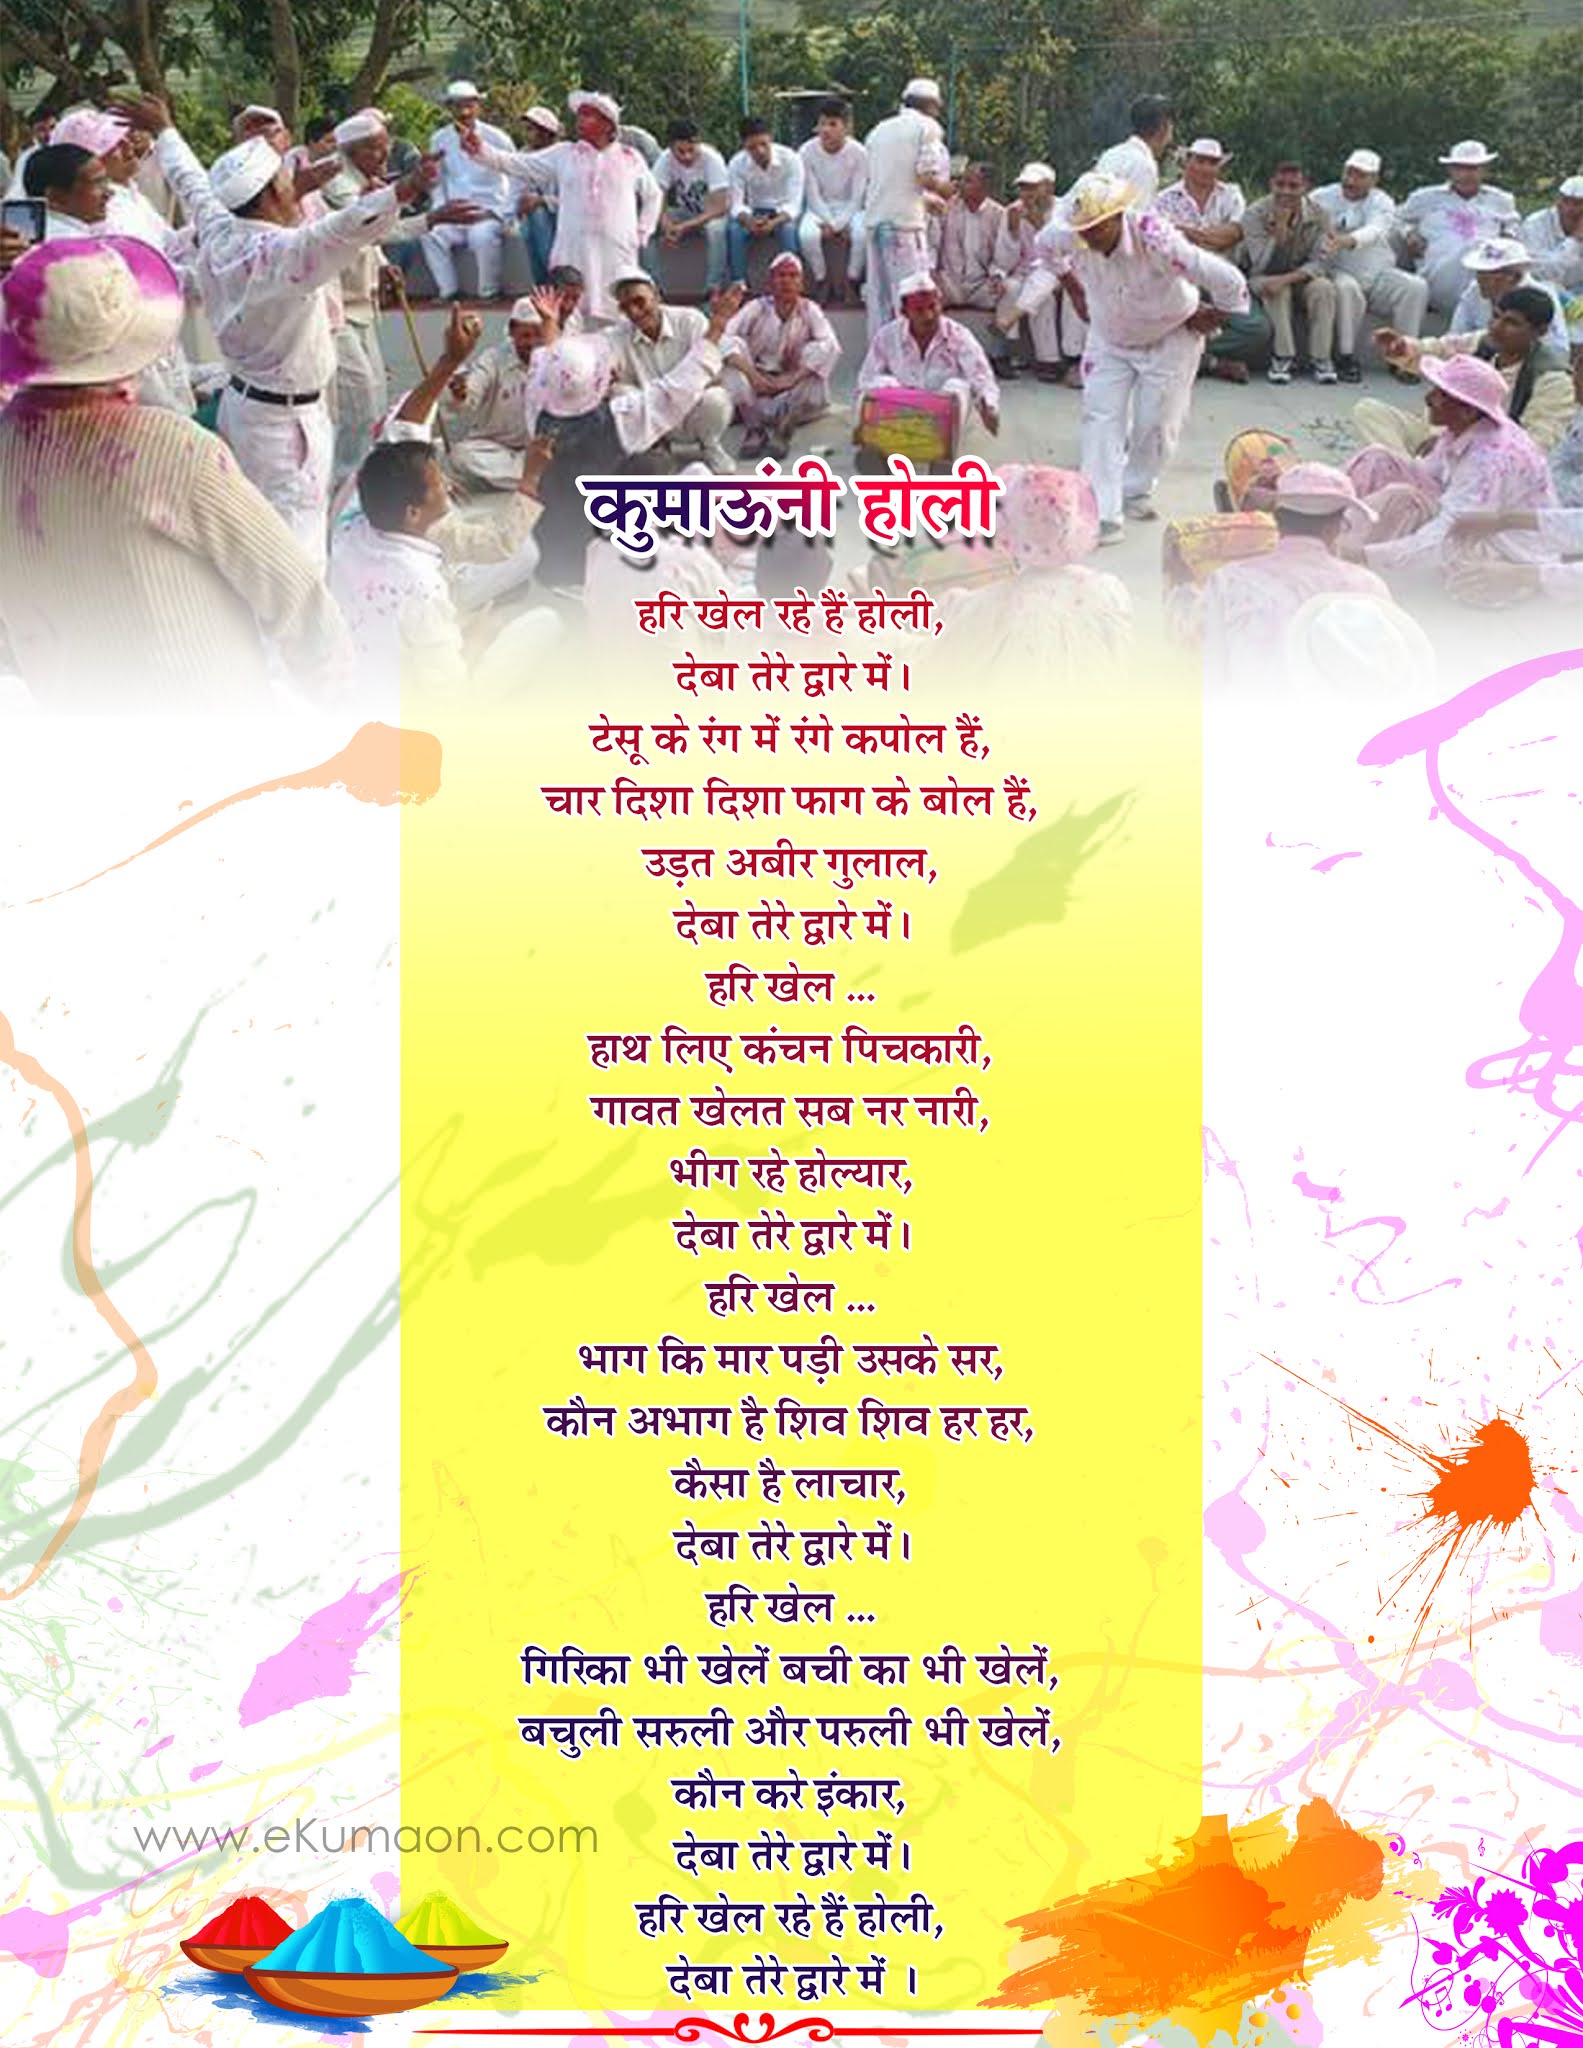 कुमाऊंनी होली
हरि खेल रहे हैं होली,
देबा तेरे द्वारे में।
टेसू के रंग में रंगे कपोल हैं,
चार दिशा दिशा फाग के बोल हैं,
उड़त अबीर गुलाल,
देबा तेरे द्वारे में।
हरि खेल ...
हाथ लिए कंचन पिचकारी,
गावत खेलत सब नर नारी,
भीग रहे होल्यार,
देबा तेरे द्वारे में।
हरि खेल ...
भाग कि मार पड़ी उसके सर,
कौन अभाग है शिव शिव हर हर,
कैसा है लाचार,
देबा तेरे द्वारे में।
हरि खेल ...
गिरिका भी खेलें बची का भी खेलें,
बचुली सरुली और परुली भी खेलें,
कौन करे इंकार,
देबा तेरे द्वारे में।
हरि खेल रहे हैं होली,
देबा तेरे द्वारे में ।
www.eKumaon.com